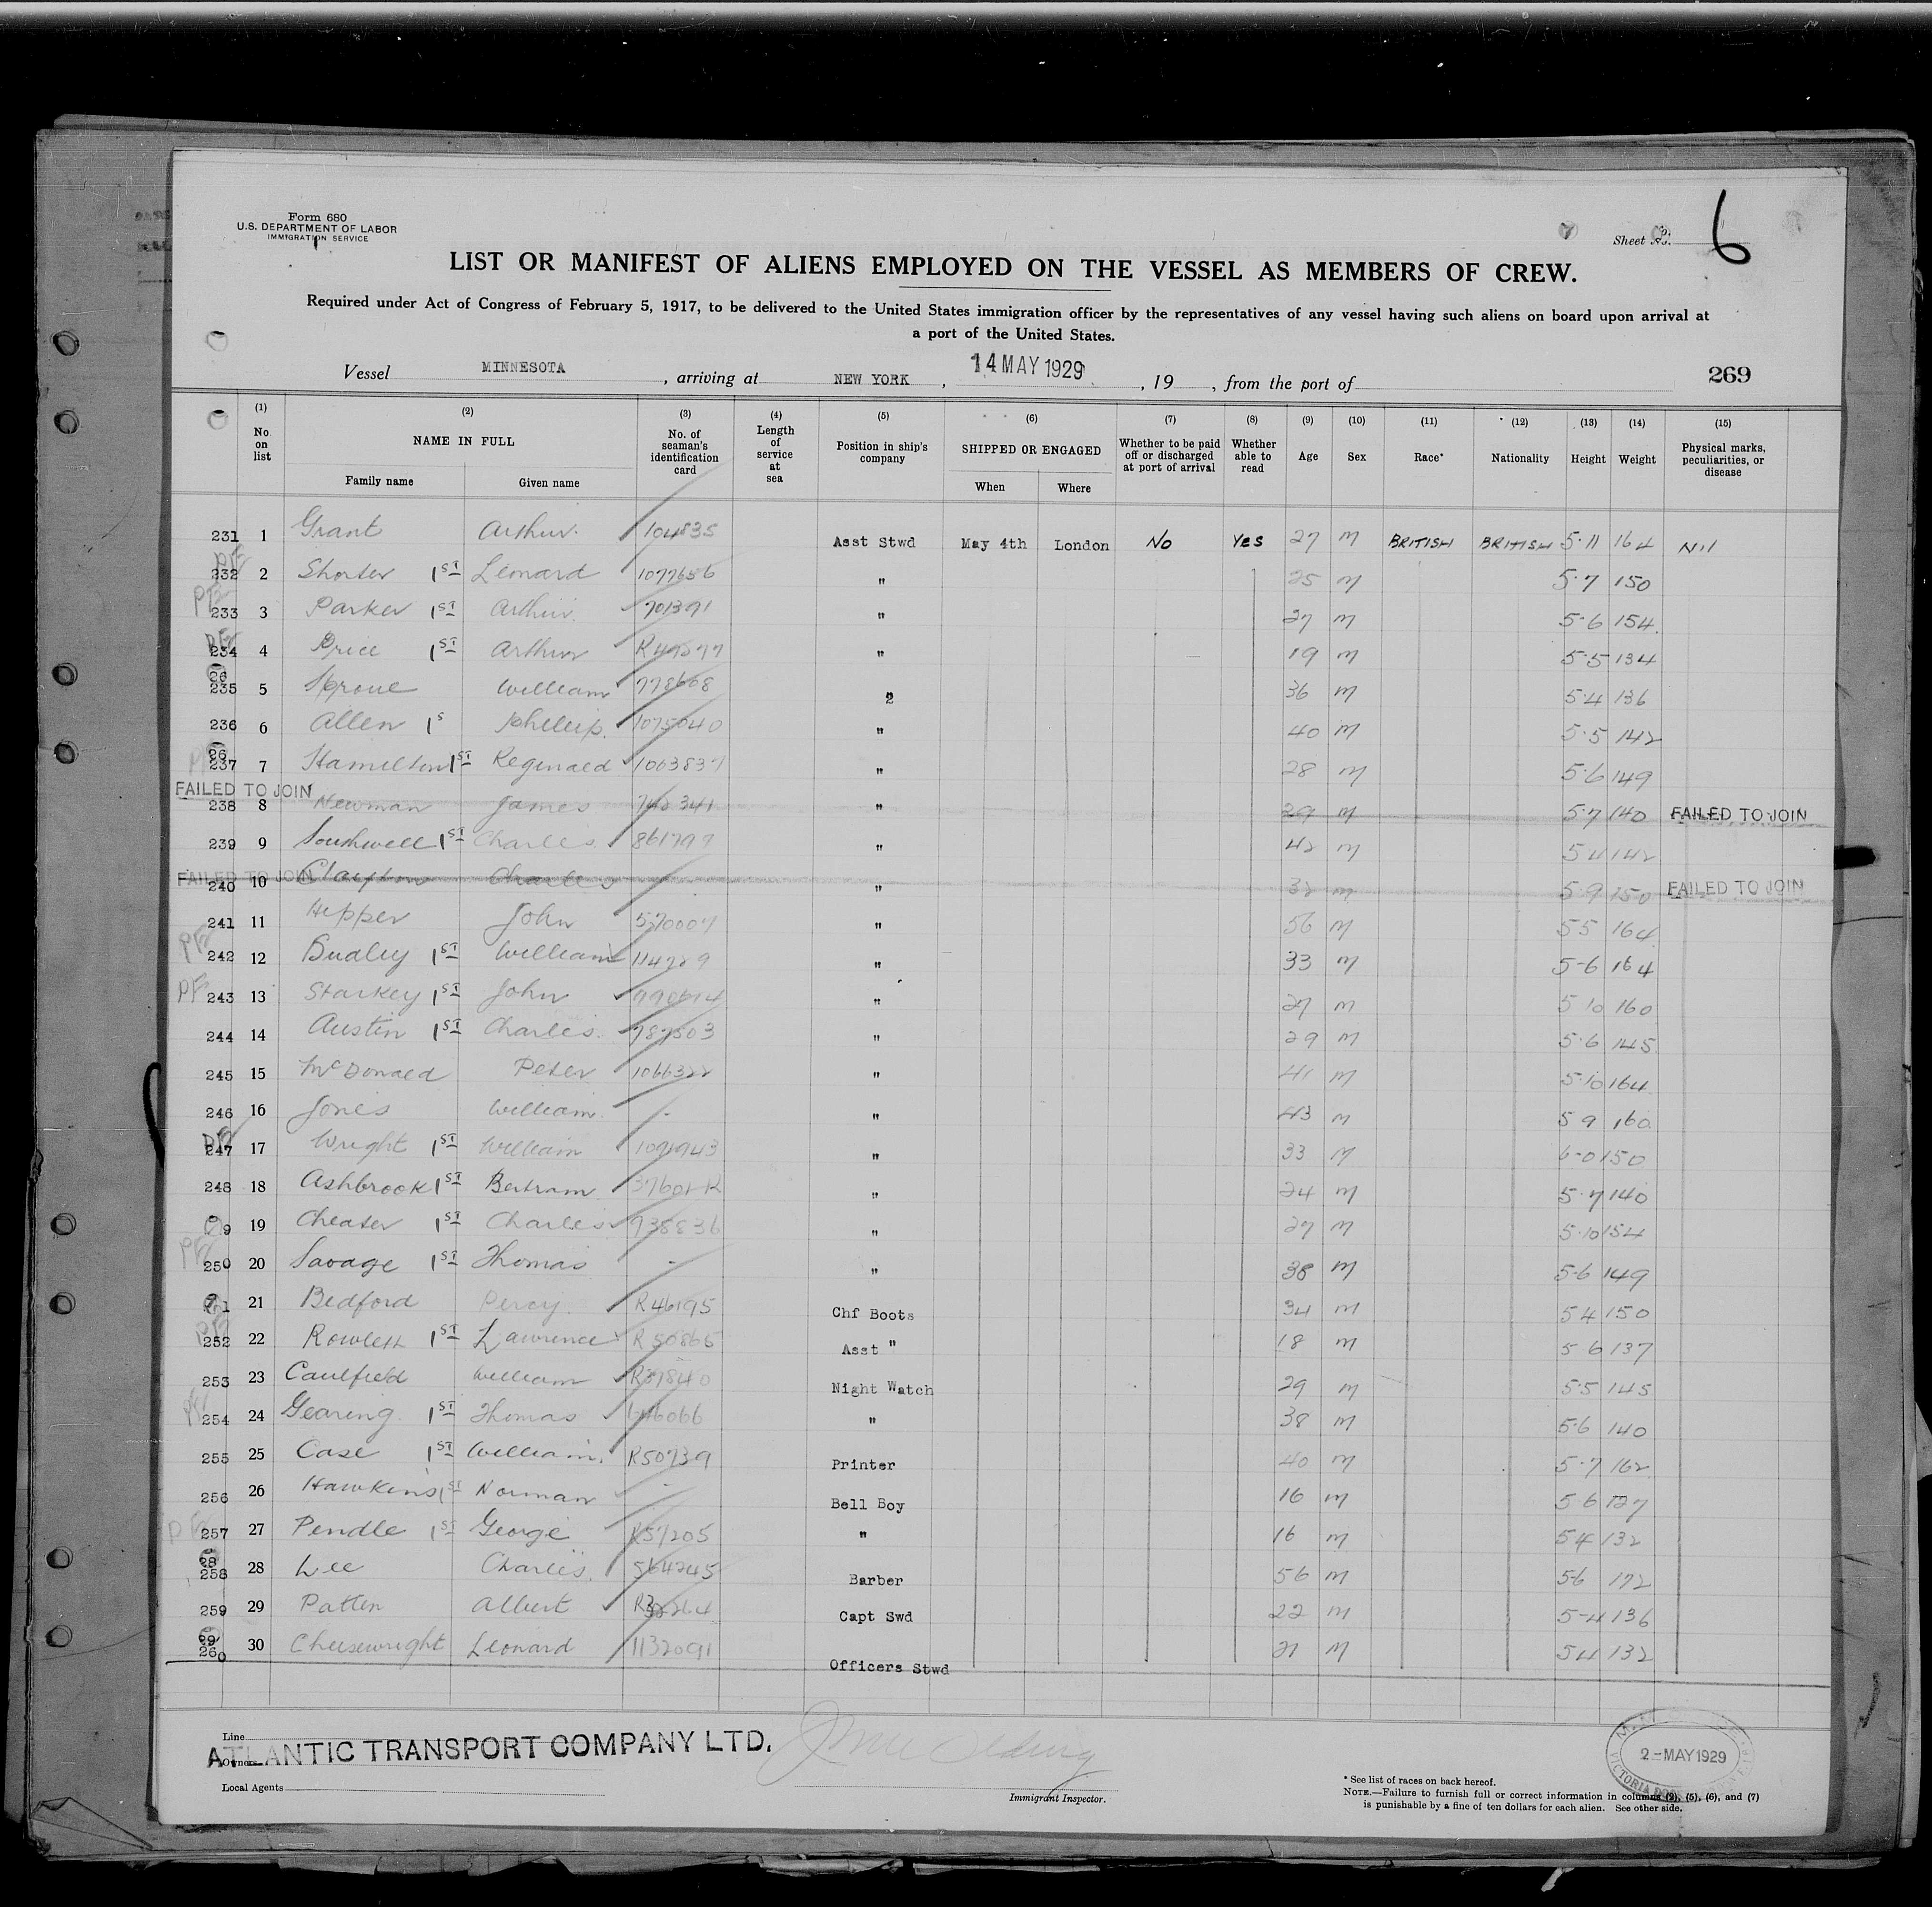 Form 680
U.S. DEPARTMENT OF LABOR
IMMIGRATION SERVICE
Sheet No. 6
LIST OR MANIFEST OF ALIENS EMPLOYED ON THE VESSEL AS MEMBERS OF CREW.
Required under Act of Congress of February 5, 1917, to be delivered to the United States immigration officer by the representatives of any vessel having such aliens on board upon arrival at
a port of the United States.
Vessel MINNESOTA, arriving at NEW YORK, 14 MAY 1929, 19 , from the port of 269
(1) No. on list (2) NAME IN FULL Family name Given name (3) No. of seaman's identification card (4) Length of service at sea (5) Position in ship's company (6) SHIPPED OR ENGAGED When Where (7) Whether to be paid off or discharged at port of arrival (8) Whether able to read (9) Age (10) Sex (11) Race* (12) Nationality (13) Height (14) Weight (15) Physical marks, peculiarities, or disease
231 1 Grant Arthur 104835 Asst Stwd May 4th London No Yes 27 M BRITISH BRITISH 5.11 164 Nil
232 2 Shorter 1ST Leonard 1077656 " 25 M 5.7 150
233 3 Parker 1ST Arthur 701391 " 27 M 5.6 154
234 4 Price 1ST Arthur " 19 M 5.5 134
235 5 Sproul William 778608 2 36 M 5.4 136
236 6 Allen 1S Phillip 1075040 " 40 M 5.5 142
237 7 Hamilton 1ST Reginald 1063837 " 28 M 5.6 149
FAILED TO JOIN
238 8 Newman James 742341 " 29 M 5.7 140 FAILED TO JOIN
239 9 Southwell 1ST Charles 861797 " 42 M 5 4 142
FAILED TO JOIN
240 10 Clayton Charles - " 32 M 5.9 150 FAILED TO JOIN
241 11 Hepper John 570007 " 56 M 5 5 164
PF 242 12 1ST William 114729 " 33 M 5-6 164
PF 243 13 Starkey 1ST John 990614 " 27 M 5 10 160
244 14 Austin 1ST Charles 787503 " 29 M 5.6 145
245 15 McDonald Peter 1066322 " 41 M 5.10 164
246 16 Jones William - " 43 M 5 9 160
247 17 Wright 1ST William 1091943 " 33 M 6-0 150
248 18 Ashbrook 1ST Bertram " 24 M 5.7 140
9 19 Cheater 1ST Charles 938836 " 27 M 5.10 154
PF 250 20 Savage 1ST Thomas - " 38 M 5.6 149
1 21 Bedford Percy R46195 Chf Boots 34 M 5 4 150
252 22 Rowlett 1ST Lawrence R50865 Asst " 18 M 5 6 137
253 23 Caulfield William R37840 Night Watch 29 M 5.5 145
254 24 Gearing 1ST Thomas 646066 " 38 M 5.6 140
255 25 Case 1ST William R50739 Printer 40 M 5.7 162
256 26 Hawkins 1ST Norman - Bell Boy 16 M 5 6 127
257 27 Pendle 1ST George R57205 " 16 M 5 4 132
258 28 Lee Charles 564245 Barber 56 M 5-6 172
259 29 Patten Albert Capt Swd 22 M 5-4 136
260 30 Cheesewright Leonard 1132091 Officers Stwd 21 M 5 4 132
Line
Owners ATLANTIC TRANSPORT COMPANY LTD.
Local Agents
Immigrant Inspector.
2-MAY 1929
* See list of races on back hereof.
NOTE.—Failure to furnish full or correct information in columns (2), (5), (6), and (7)
is punishable by a fine of ten dollars for each alien. See other side.